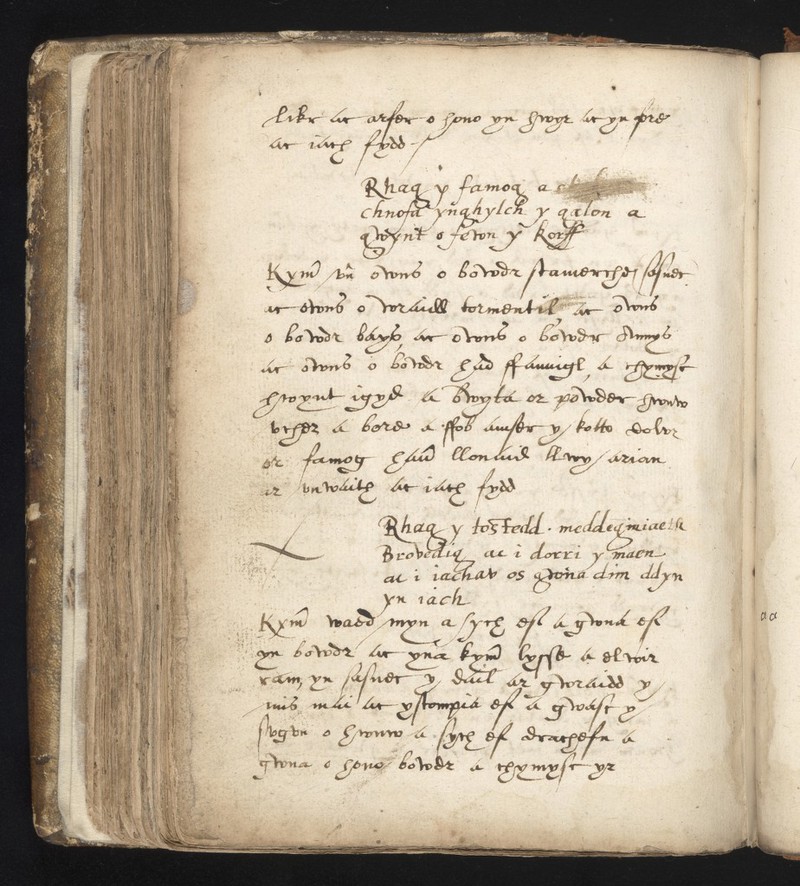 likr ac arfer o hono yn hwyr ac yn fore
ac iach fydd
Rhag y famog a
chnofa ynghylch y galon a
gwynt o fewn y korff
Kym vn owns o bowdr stamerche sasnec
ac owns o wraidd tormentil ac owns
o bowdr bays, ac owns o bowder
ac owns o bowdr had ffanigl, a chymysc
hwynt igyd a bwyta or powder hwnw
vcher a bore a ffob amser y kotto dolvr
or famog hanü llonaid llwy arian
ar vnwaith ac iach fydd
Rhag y tostedd . meddeginiaeth
Brovedig ac i dorri y maen
ac i iachav os gwna dim ddyn
yn iach
Kym waed myn a sych efi a gwna efi
yn bowdr ac yna kym lysse a elwir
ram, yn sasnec y dail ar gwraidd y
mis mai ac ystompia efi a gwasc y
svgvn o hwnw a sych ef drachefn a
gwna o hono bowdr a chymysc yr
aa